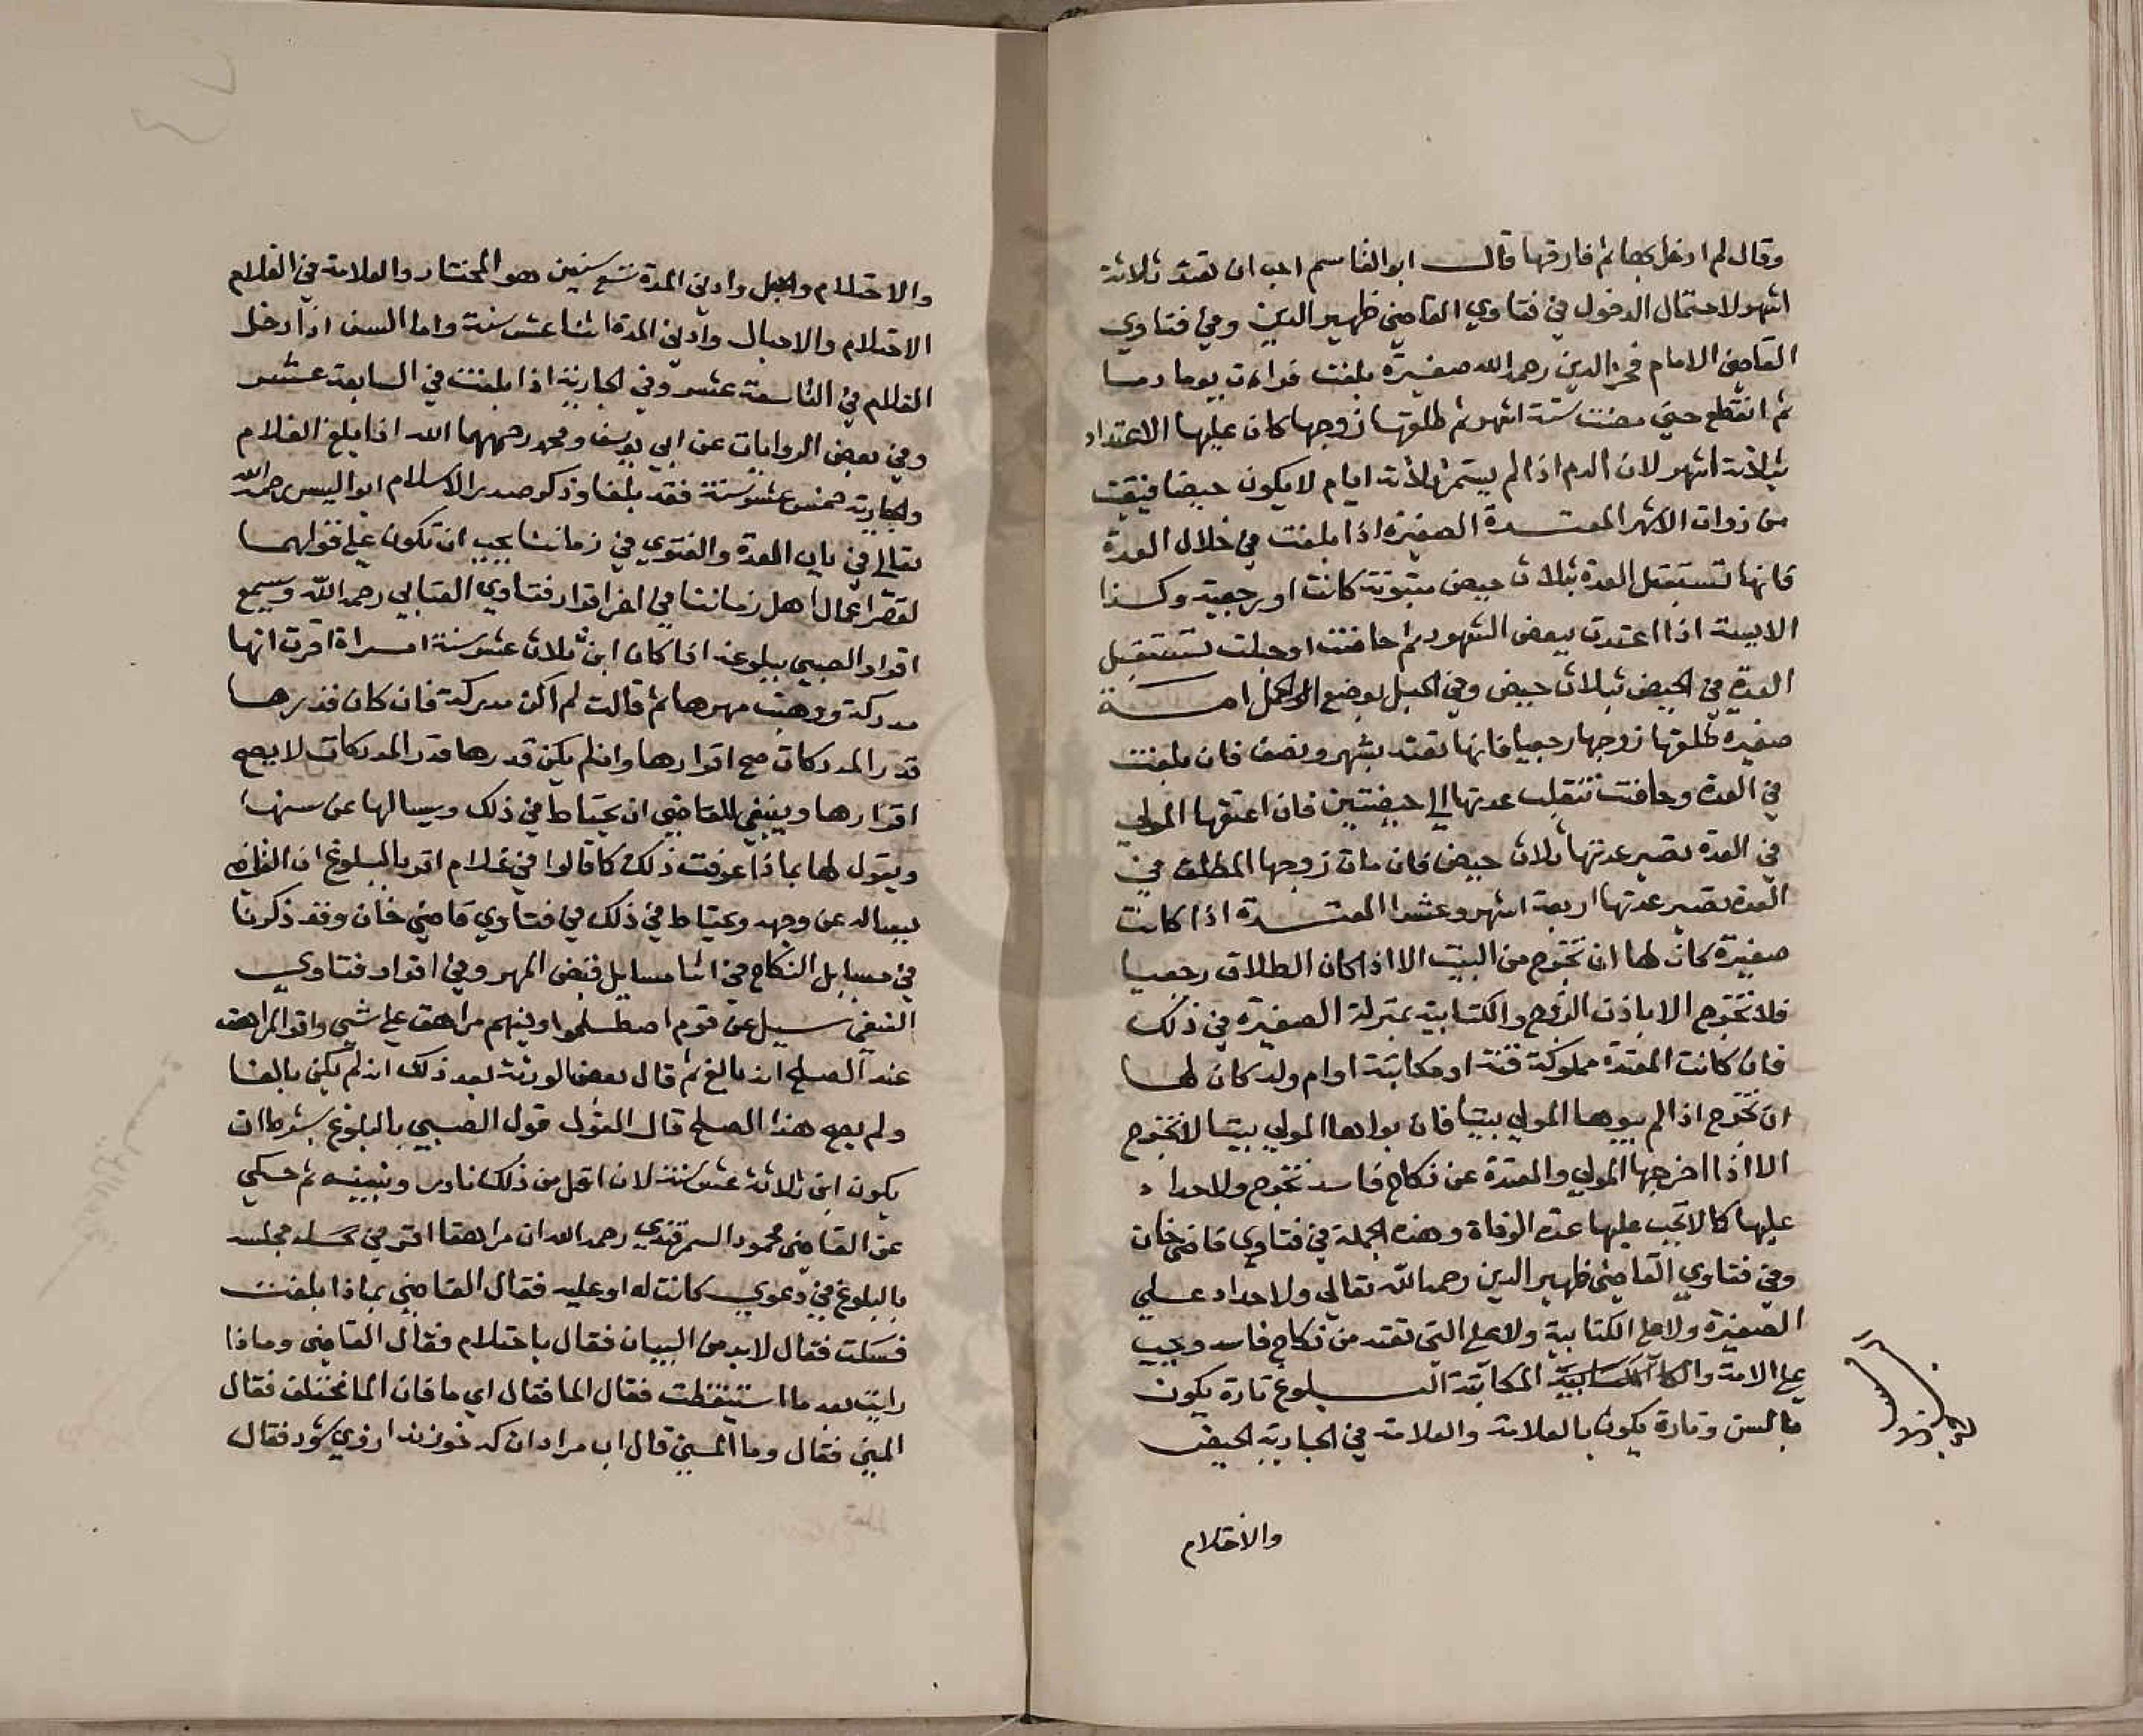 وقال لم ادخل بها ثم فارقها قالــ ابو القاسم احب ان تعتد ثلاثة
اشهر لاحتمال الدخول في فتاوي القاضي ظهير الدين وفي فتاوي
القاضي الامام فخر الدين رحمه الله صغيرة بلغت فرات يوما دما
ثم انقطع حتي مضت ستة اشهر ثم طلقها زوجها كان عليها الاعتداد
بثلاثة اشهر لان الدم اذا لم يستمر ثلاثة ايام لا يكون حيضا فبقيت
من ذوات الاشهر المعتـــدة الصغيرة اذا بلغت في خلال العدة
فانها تستقبل العدة بثلاث حيض مبتوتة كانت او رجعية وكــذا
الايسة اذا اعتدت ببعض الشهور ثم حاضت او حبلت تستقبل
العدة في الحيض بثلاث حيض وفي الحبل بوضع الحمل امــــة
صغيرة طلقها زوجها رجعيا فانها تعتد بشهر ونصف فان بلغت
في العدة وحاضت تنقلب عدتها الي حيضتين فان اعتقها المولي
في العدة تصير عدتها ثلاث حيض فان مات زوجها المطلق في
العدة تصير عدتها اربعة اشهر وعشرا المعتـــدة اذا كانت
صغيرة كان لها ان تخرج من البيت الا اذا كان الطلاق رجعيا
فلا تخرج الا باذن الزوج والكتابية بمنزلة الصغيرة في ذلك
فان كانت المعتدة مملوكة قنة او مكاتبة او ام ولد كان لهــا
ان تخرج اذا لم يبوها المولي بيتا فان بواها المولي بيتا لا تخرج
الا اذا اخرجها المولي والمعتدة عن نكاح فاسد تخرج ولا حداد
عليها كما لا تجب عليها عدة الوفاة وهذه الجملة في فتاوي قاضي خان
وفي فتاوي القاضي ظهير الدين رحمه الله تعالي ولا حداد علــي
الصغيرة ولا علي الكتابية ولا علي التي تعتد من نكاح فاسد ويجب
علي الامة والمكاتبة البـــلوغ تارة يكون
بالسن وتارة يكون بالعلامة والعلامة في الجارية الحيض
والاحتلام
والاحتلام والحبل وادني المدة تسع سنين هو المختار والعلامة في الغلام
الاحتلام والاحبال وادني المدة اثنا عشر سنة واما السن اذا دخل
الغلام في التاسعة عشر وفي الجارية اذا بلغت في السابعة عشر
وفي بعض الروايات عن ابي يوسف ومحمد رحمهما الله اذا بلغ الغلام
والجارية خمس عشر سنة فقد بلغا وذكر صدر الاسلام ابو اليسر رحمه الله
تعالي في بان العدة والفتوي في زماننا يجب ان تكون علي قولهمــا
لقصر اعمال اهل زماننا في اخر اقرار فتاوي العتابي رحمه الله وسيمع
اقرار الصبي ببلوغه اذا كان ابن ثلاث عشر سنة امــراة اقرت انها
مدركة ووهبت مهرها ثم قالت لم اكن مدركة فان كان قدرهــا
قدر المدركات صح اقرارها وان لم يكن قدرها قدر المدركات لا يصح
اقرارها وينبغي للقاضي ان يحتاط في ذلك ويسالها عن سنها
ويقول لها بماذا عرفت ذلك كما قالوا في غلام اقر بالبلوغ ان القاضي
يساله عن وجهه ويحتاط في ذلك في فتاوي قاضي خان وقد ذكرنا
في مسايل النكاح في اثنا مسايل قبض المهر وفي اقرار فتاوي
النسفي ســيل عن قوم اصطلحوا وفيهم مراهق علي شي واقر المراهق
عند الصلح انه بالغ ثم قال بعض الورثة بعد ذلك انه لم يكن بالغا
ولم يصح هذا الصلح قال القول قول الصبي بالبلوغ بشرط ان
يكون ابن ثلاثة عشر سنة لان اقل من ذلك نادر وبنيته ثم حكي
عن القاضي محمود السمرقندي رحمه الله ان مراهقا اقر في مجلسه
بالبلوغ في دعوي كانت له او عليه فقال القاضي بماذا بلغت
فسكت فقال لابد من البيان فقال باحتلام فقال القاضي وماذا
رايت بعد ما استيقظت فقال الما فقال اي ما فان الما مختلف فقال
المني فقال وما المني قال اب مرادان كه خوزندا ارزي شود فقال